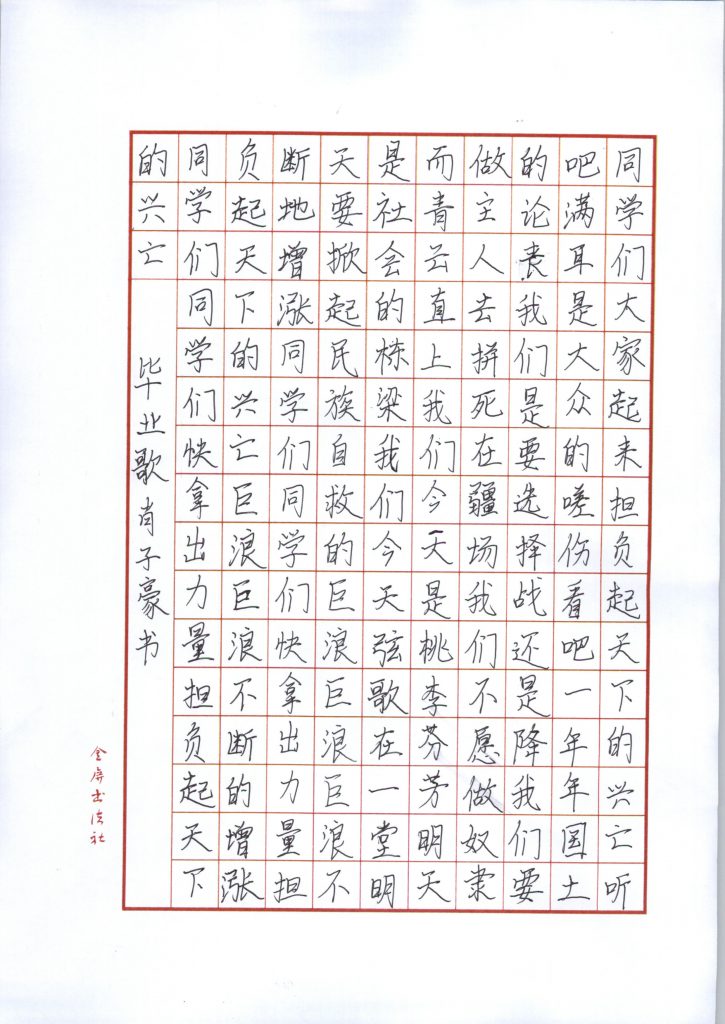 同学们大家起来担负起天下的兴亡听
吧满耳是大众的嗟伤看吧一年年国土
的论丧我们是要选择战还是降我们要
做主人去拼死在疆场我们不愿做奴隶
而青云直上我们今天是桃李芬芳明天
是社会的栋梁我们今天弦歌在一堂明
天要掀起民族自救的巨浪巨浪巨浪不
断地增涨同学们同学们快拿出力量担
负起天下的兴亡巨浪巨浪不断的增涨
同学们同学们快拿出力量担负起天下
的兴亡 毕业歌 肖子豪书
金屏书法社